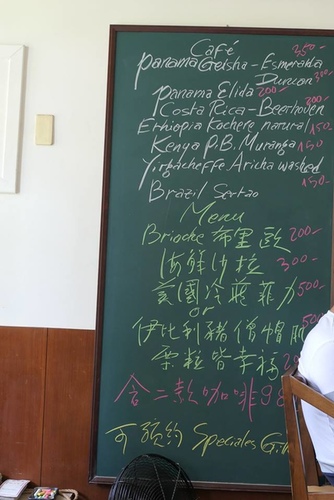 Café
Panama Geisha - Esmeralda 350-
Duncan 300-
Panama Elida 200-
Costa Rica - Beethoven 200-
Ethiopia Kochere natural 150-
Kenya P.B. Muranga 150
Yirgacheffe Aricha washed
150-
Brazil Sertao
Menu
Brioche 布里歐 200-
海鮮沙拉 300-
美國冷藏菲力 500-
or
伊比利豬僧帽肌 500
栗粒皆幸福
含二款咖啡98
可預約 Speciales Gill